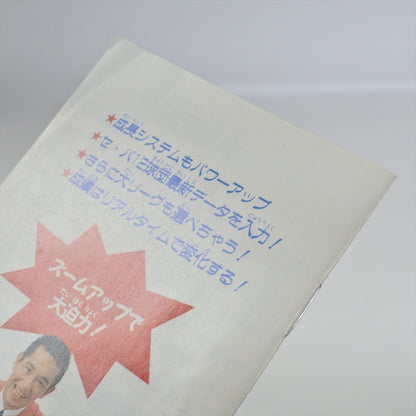 ★成長システムもパワーアップ
★セ・パ12球団最新データを入力！
★さらに大リーグも選べちゃう！
★成績はリアルタイムで変化する！
ズームアップで
大迫力！